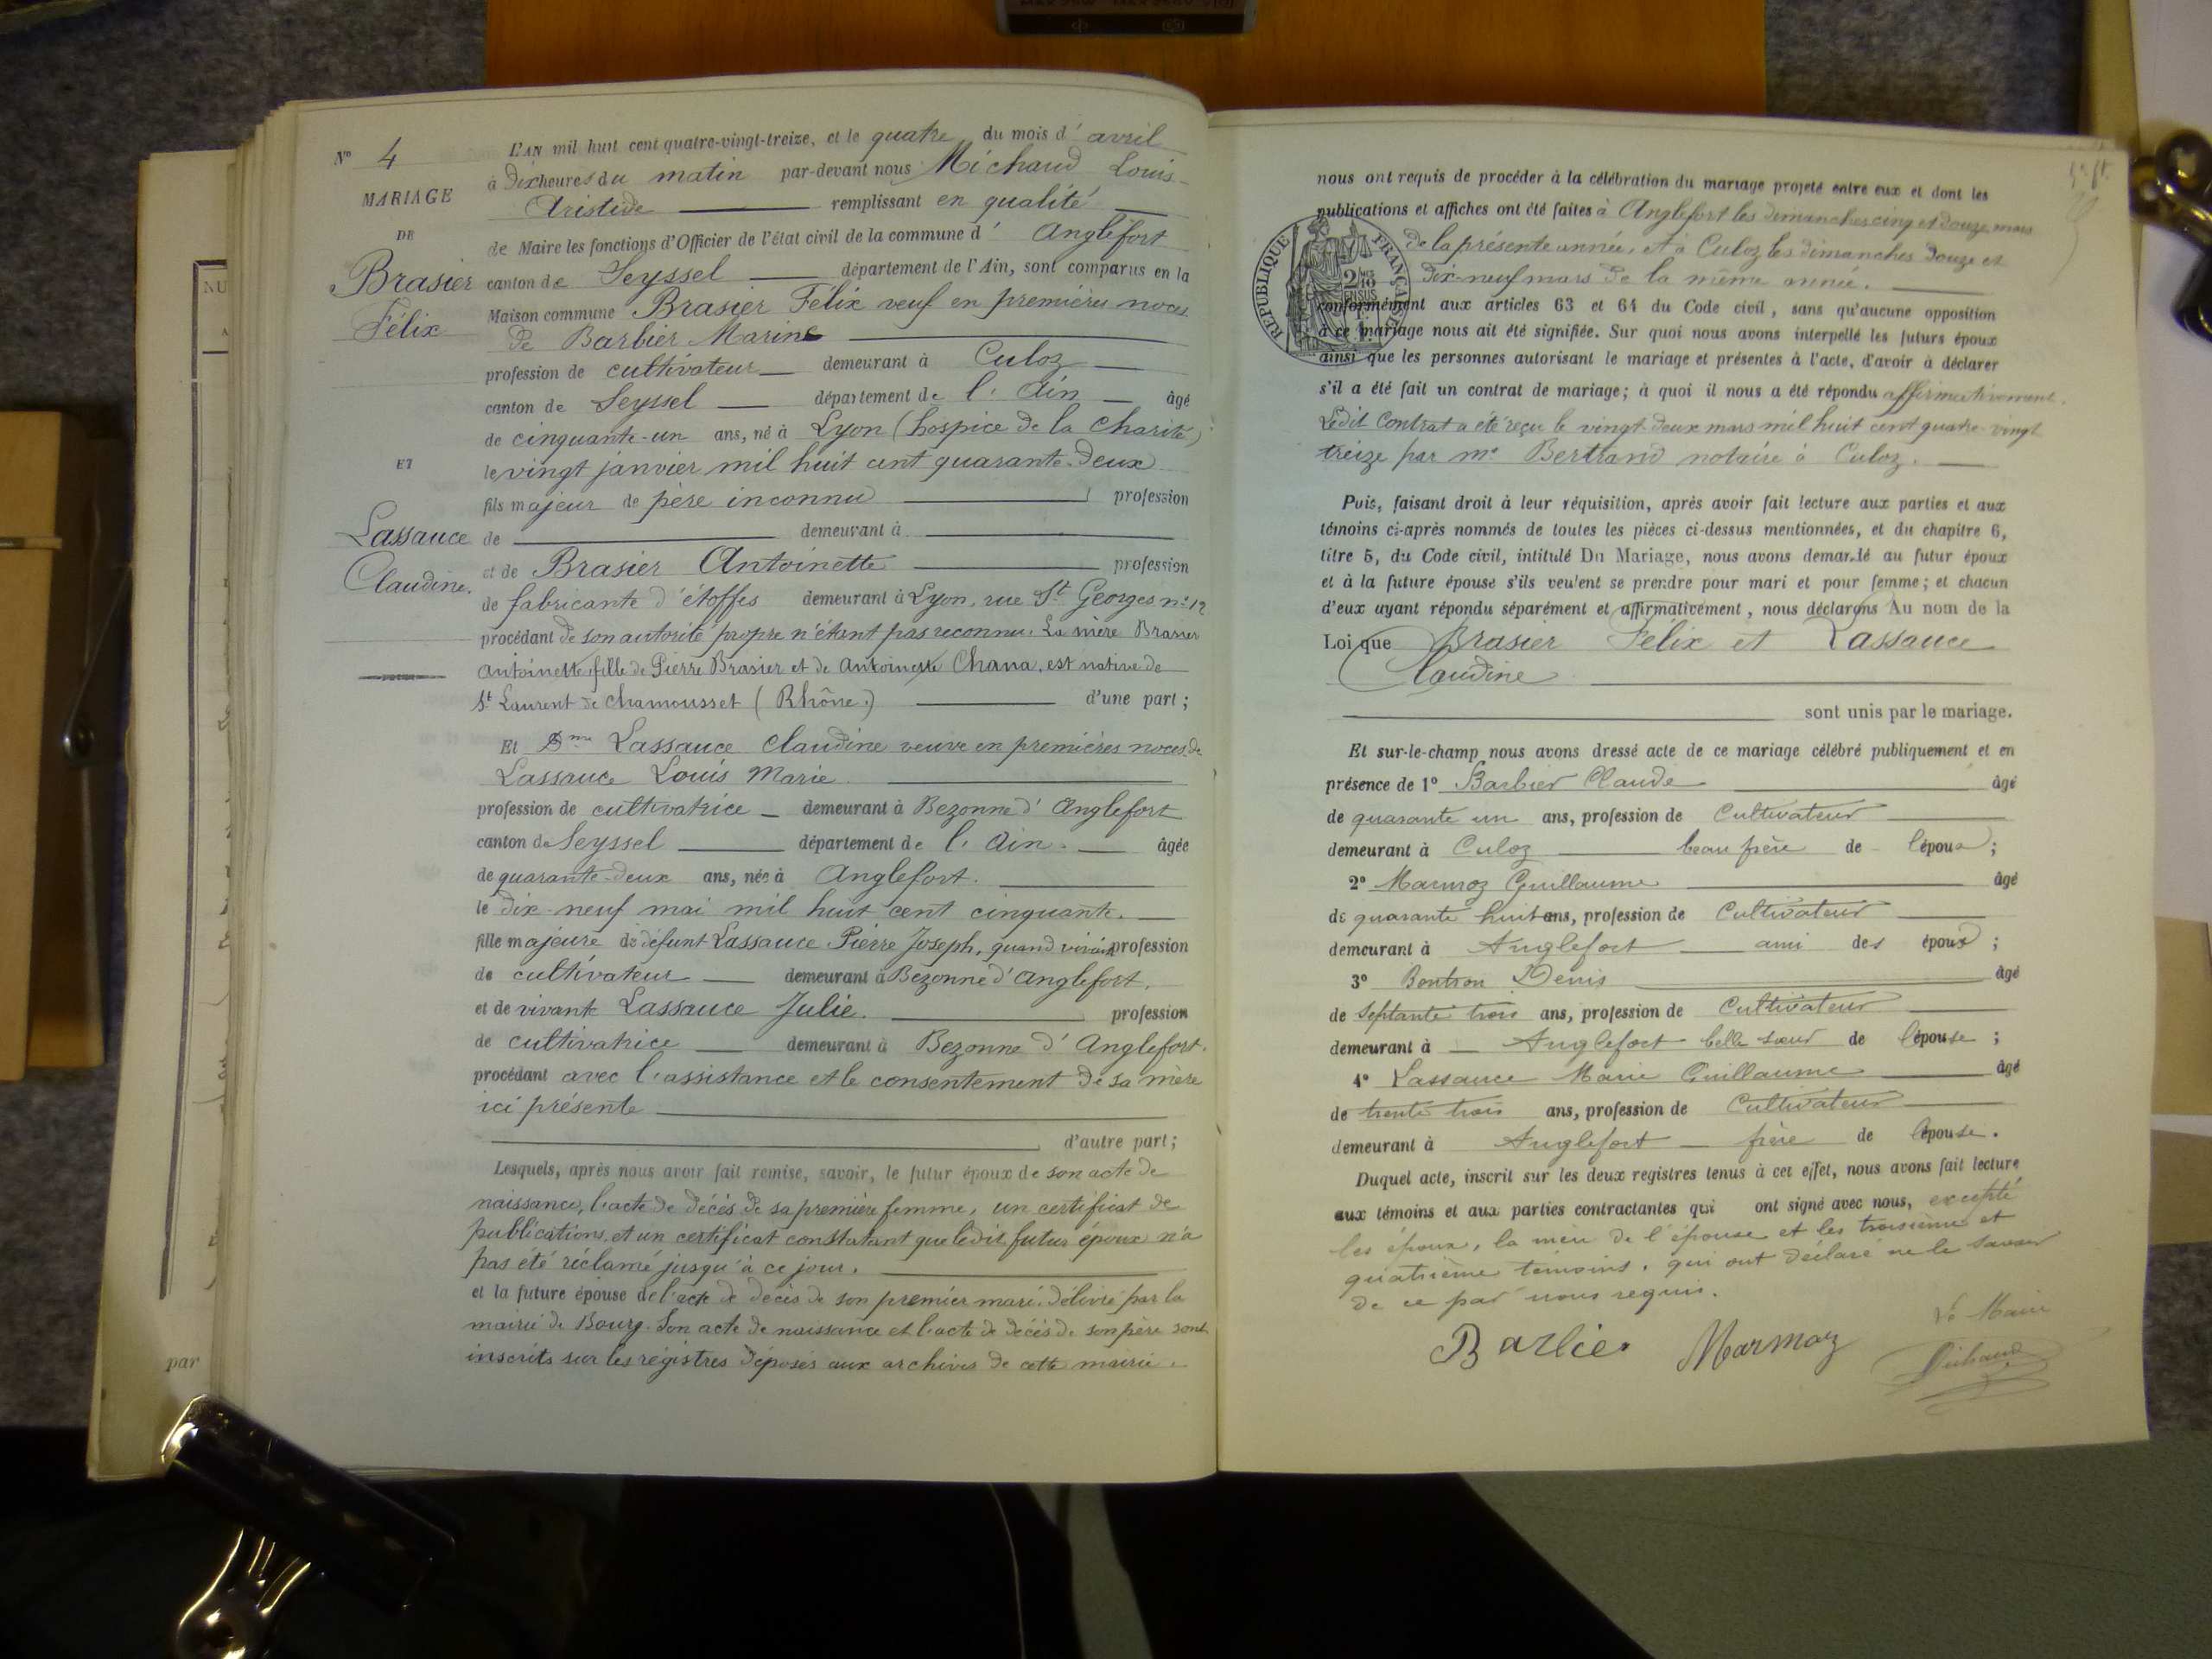 N° 4
MARIAGE
DE
Brasier
Félix
ET
Lassauce
Claudine.
L'AN mil huit cent quatre-vingt-treize, et le quatre du mois d'avril
à dix heures du matin par-devant nous Michaud Louis-
Aristide remplissant en qualité
de Maire les fonctions d'Officier de l'état civil de la commune d' Anglefort
canton de Seyssel département de l'Ain, sont comparus en la
Maison commune Brasier Félix veuf en premières noces
de Barbier Marine
profession de cultivateur demeurant à Culoz
canton de Seyssel département de l'Ain âgé
de cinquante-un ans, né à Lyon (hospice de la Charité)
le vingt janvier mil huit cent quarante-deux
fils majeur de père inconnu profession
de demeurant à
et de Brasier Antoinette profession
de fabricante d'étoffes demeurant à Lyon, rue St Georges n° 12
procédant de son autorité propre n'étant pas reconnu. La mère Brasier
Antoinette, fille de Pierre Brasier et de Antoinette Chana, est native de
St Laurent de Chamousset (Rhône.) d'une part;
Et Dme Lassauce Claudine veuve en premières noces de
Lassauce Louis Marie
profession de cultivatrice demeurant à Bezonne d'Anglefort
canton de Seyssel département de l'Ain. âgée
de quarante-deux ans, née à Anglefort.
le dix-neuf mai mil huit cent cinquante.
fille majeure de défunt Lassauce Pierre Joseph, quand vivait profession
de cultivateur demeurant à Bezonne d'Anglefort.
et de vivante Lassauce Julie. profession
de cultivatrice demeurant à Bezonne d'Anglefort.
procédant avec l'assistance et le consentement de sa mère
ici présente
d'autre part;
Lesquels, après nous avoir fait remise, savoir, le futur époux de son acte de
naissance, l'acte de décès de sa première femme, un certificat de
publications, et un certificat constatant que ledit futur époux n'a
pas été réclamé jusqu'à ce jour.
et la future épouse de l'acte de décès de son premier mari, délivré par la
mairie de Bourg. Son acte de naissance et l'acte de décès de son père sont
inscrits sur les registres déposés aux archives de cette mairie.
par
nous ont requis de procéder à la célébration du mariage projeté entre eux et dont les
publications et affiches ont été faites à Anglefort les dimanches cinq et douze mars
de la présente année, et à Culoz les dimanches douze et
dix-neuf mars de la même année.
REPUBLIQUE FRANÇAISE
conformément aux articles 63 et 64 du Code civil, sans qu'aucune opposition
à ce mariage nous ait été signifiée. Sur quoi nous avons interpellé les futurs époux
ainsi que les personnes autorisant le mariage et présentes à l'acte, d'avoir à déclarer
s'il a été fait un contrat de mariage; à quoi il nous a été répondu affirmativement.
Ledit contrat a été reçu le vingt-deux mars mil huit cent quatre-vingt
treize par Me Bertrand notaire à Culoz.
Puis, faisant droit à leur réquisition, après avoir fait lecture aux parties et aux
témoins ci-après nommés de toutes les pièces ci-dessus mentionnées, et du chapitre 6,
titre 5, du Code civil, intitulé Du Mariage, nous avons demandé au futur époux
et à la future épouse s'ils veulent se prendre pour mari et pour femme; et chacun
d'eux ayant répondu séparément et affirmativement, nous déclarons Au nom de la
Loi que Brasier Félix et Lassauce
Claudine
sont unis par le mariage.
Et sur-le-champ nous avons dressé acte de ce mariage célébré publiquement et en
présence de 1° Barbier Claude âgé
de quarante un ans, profession de Cultivateur
demeurant à Culoz beau frère de l'époux;
2° Marmoz Guillaume âgé
de quarante huit ans, profession de Cultivateur
demeurant à Anglefort ami des époux;
3° Bontron Denis âgé
de septante trois ans, profession de Cultivateur
demeurant à Anglefort belle sœur de l'épouse;
4° Lassauce Marie Guillaume âgé
de trente trois ans, profession de Cultivateur
demeurant à Anglefort frère de l'épouse.
Duquel acte, inscrit sur les deux registres tenus à cet effet, nous avons fait lecture
aux témoins et aux parties contractantes qui ont signé avec nous, excepté
les époux, la mère de l'épouse et les troisième et
quatrième témoins, qui ont déclaré ne le savoir
de ce par nous requis.
Le Maire
Barbier Marmoz Michaud